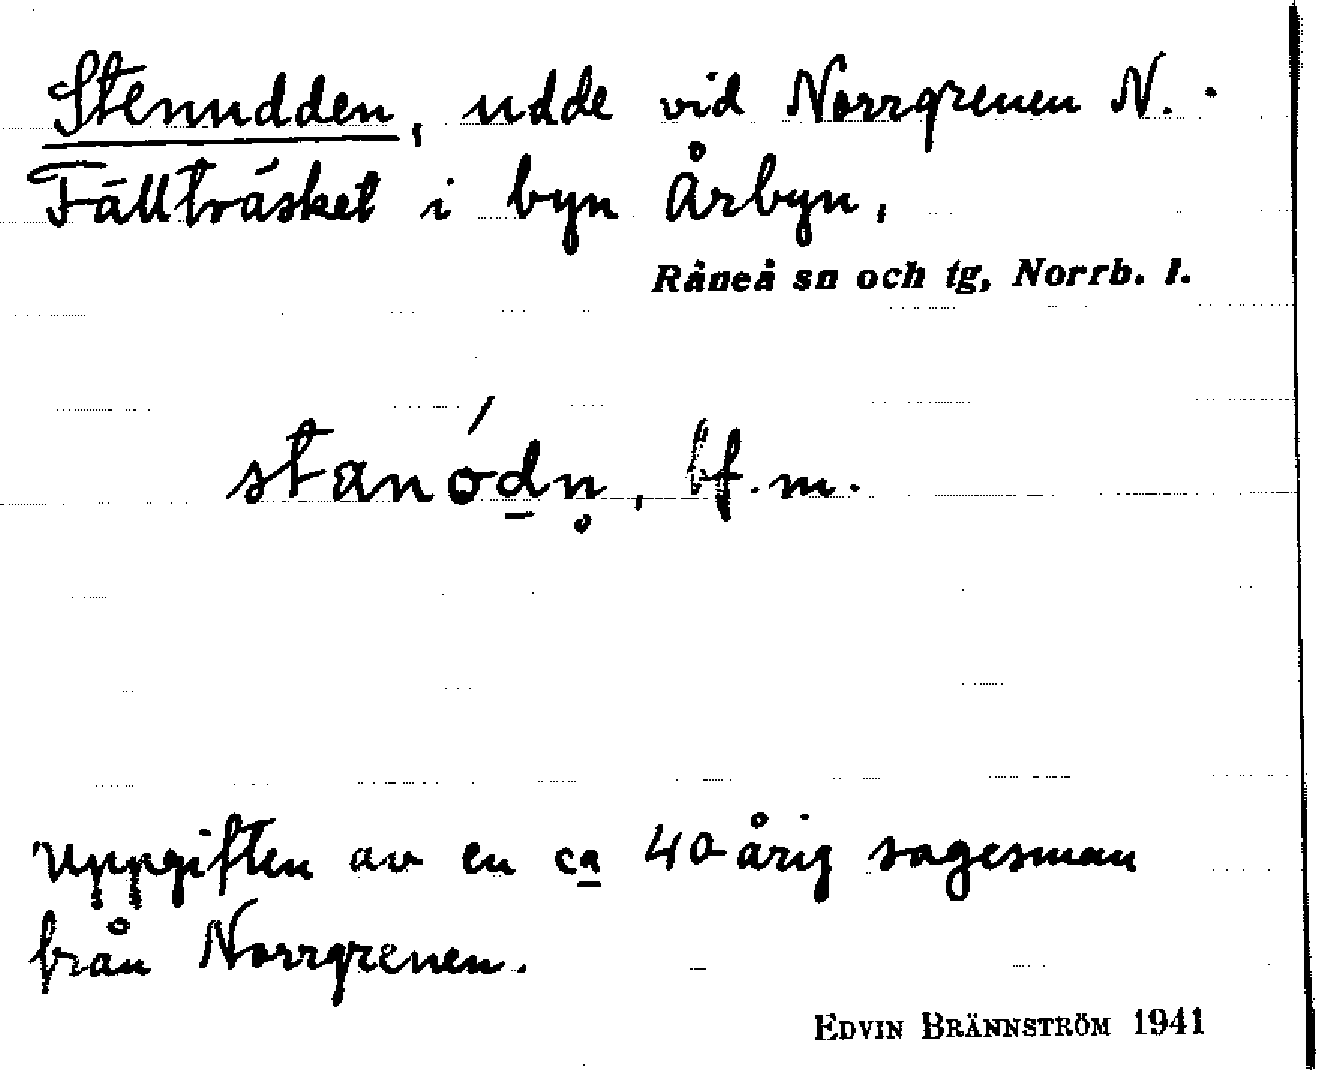 Stenudden, udde vid Norrgrenen N.
Fällträsket i byn Årbyn,
Råneå sn och tg, Norrb. l.
stanódn̥, bf. m.
Uppgiften av en ca 40-årig sagesman
från Norrgrenen.
EDVIN BRÄNNSTRÖM 1941